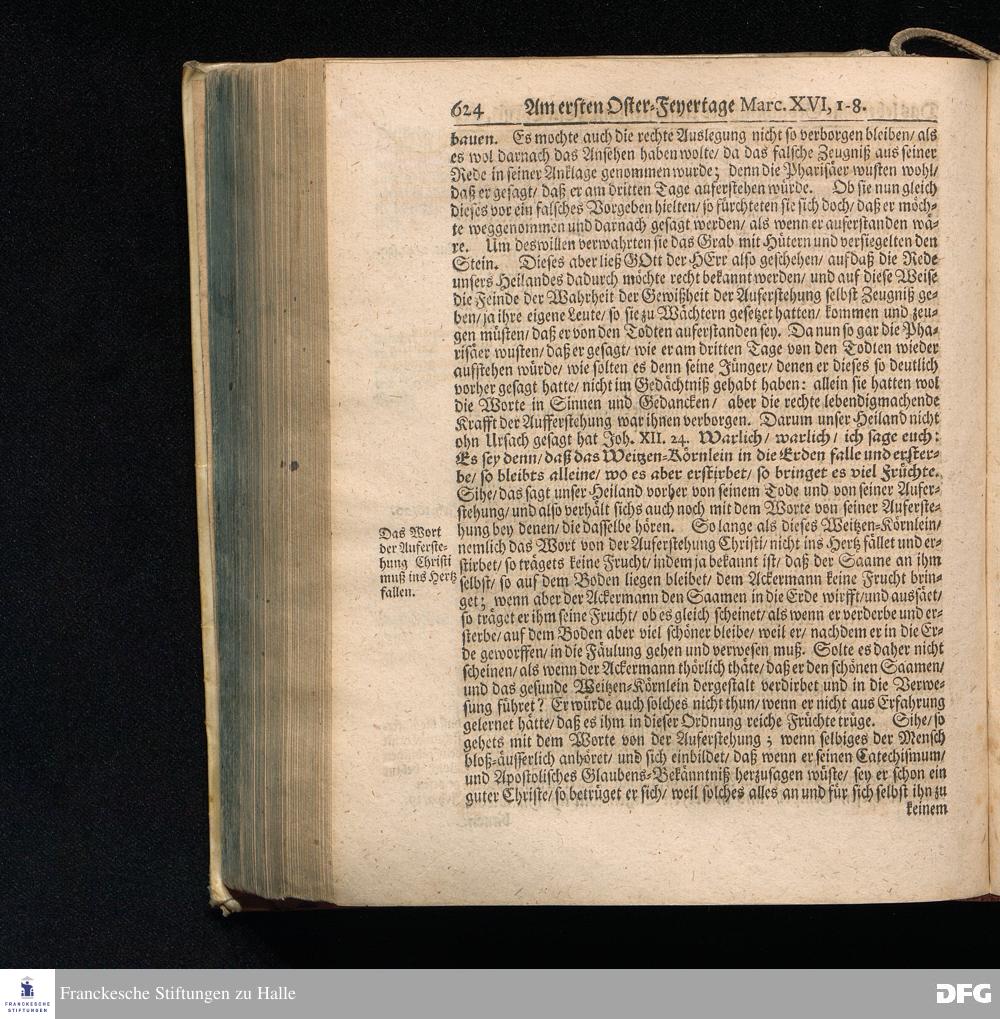 624 Am ersten Oster-Feyertage Marc. XVI, 1-8.
bauen. Es mochte auch die rechte Auslegung nicht so verborgen bleiben/ als
es wol darnach das Ansehen haben wolte/ da das falsche Zeugniß aus seiner
Rede in seiner Anklage genommen wurde; denn die Pharisäer wusten wohl/
daß er gesagt/ daß er am dritten Tage auferstehen würde. Ob sie nun gleich
dieses vor ein falsches Vorgeben hielten/ so fürchteten sie sich doch/ daß er möch-
te weggenommen und darnach gesagt werden/ als wenn er auferstanden wä-
re. Um deswillen verwahrten sie das Grab mit Hütern und versiegelten den
Stein. Dieses aber ließ GOtt der HErr also geschehen/ auf daß die Rede
unsers Heilandes dadurch möchte recht bekannt werden/ und auf diese Weise
die Feinde der Wahrheit der Gewißheit der Auferstehung selbst Zeugniß ge-
ben/ ja ihre eigene Leute/ so sie zu Wächtern gesetzet hatten/ kommen und zeu-
gen müsten/ daß er von den Todten auferstanden sey. Da nun so gar die Pha-
risäer wusten/ daß er gesagt/ wie er am dritten Tage von den Todten wieder
aufstehen würde/ wie solten es denn seine Jünger/ denen er dieses so deutlich
vorher gesagt hatte/ nicht im Gedächtniß gehabt haben: allein sie hatten wol
die Worte in Sinnen und Gedancken/ aber die rechte lebendigmachende
Krafft der Aufferstehung war ihnen verborgen. Darum unser Heiland nicht
ohn Ursach gesagt hat Joh. XII. 24. Warlich/ warlich/ ich sage euch:
Es sey denn/ daß das Weitzen-Körnlein in die Erden falle und erster-
be/ so bleibts alleine/ wo es aber erstirbet/ so bringet es viel Früchte.
Sihe/ das sagt unser Heiland vorher von seinem Tode und von seiner Aufer-
stehung/ und also verhält sichs auch noch mit dem Worte von seiner Auferste-
hung bey denen/ die dasselbe hören. So lange als dieses Weitzen-Körnlein/
nemlich das Wort von der Auferstehung Christi/ nicht ins Hertz fället und er-
stirbet/ so trägets keine Frucht/ indem ja bekannt ist/ daß der Saame an ihm
selbst/ so auf dem Boden liegen bleibet/ dem Ackermann keine Frucht brin-
get; wenn aber der Ackermann den Saamen in die Erde wirfft/ und aussäet/
so träget er ihm seine Frucht/ ob es gleich scheinet/ als wenn er verderbe und er-
sterbe/ auf dem Boden aber viel schöner bleibe/ weil er/ nachdem er in die Er-
de geworffen/ in die Fäulung gehen und verwesen muß. Solte es daher nicht
scheinen/ als wenn der Ackermann thörlich thäte/ daß er den schönen Saamen/
und das gesunde Weitzen-Körnlein dergestalt verdirbet und in die Verwe-
sung führet? Er würde auch solches nicht thun/ wenn er nicht aus Erfahrung
gelernet hätte/ daß es ihm in dieser Ordnung reiche Früchte trüge. Sihe/ so
gehets mit dem Worte von der Auferstehung; wenn selbiges der Mensch
bloß-äusserlich anhöret/ und sich einbildet/ daß wenn er seinen Catechismum/
und Apostolisches Glaubens-Bekänntniß herzusagen wüste/ sey er schon ein
guter Christe/ so betrüget er sich/ weil solches alles an und für sich selbst ihn zu
keinem
Das Wort
der Auferste-
hung Christi
muß ins Hertz
fallen.
FRANCKESCHE
STIFTUNGEN
Franckesche Stiftungen zu Halle
DFG